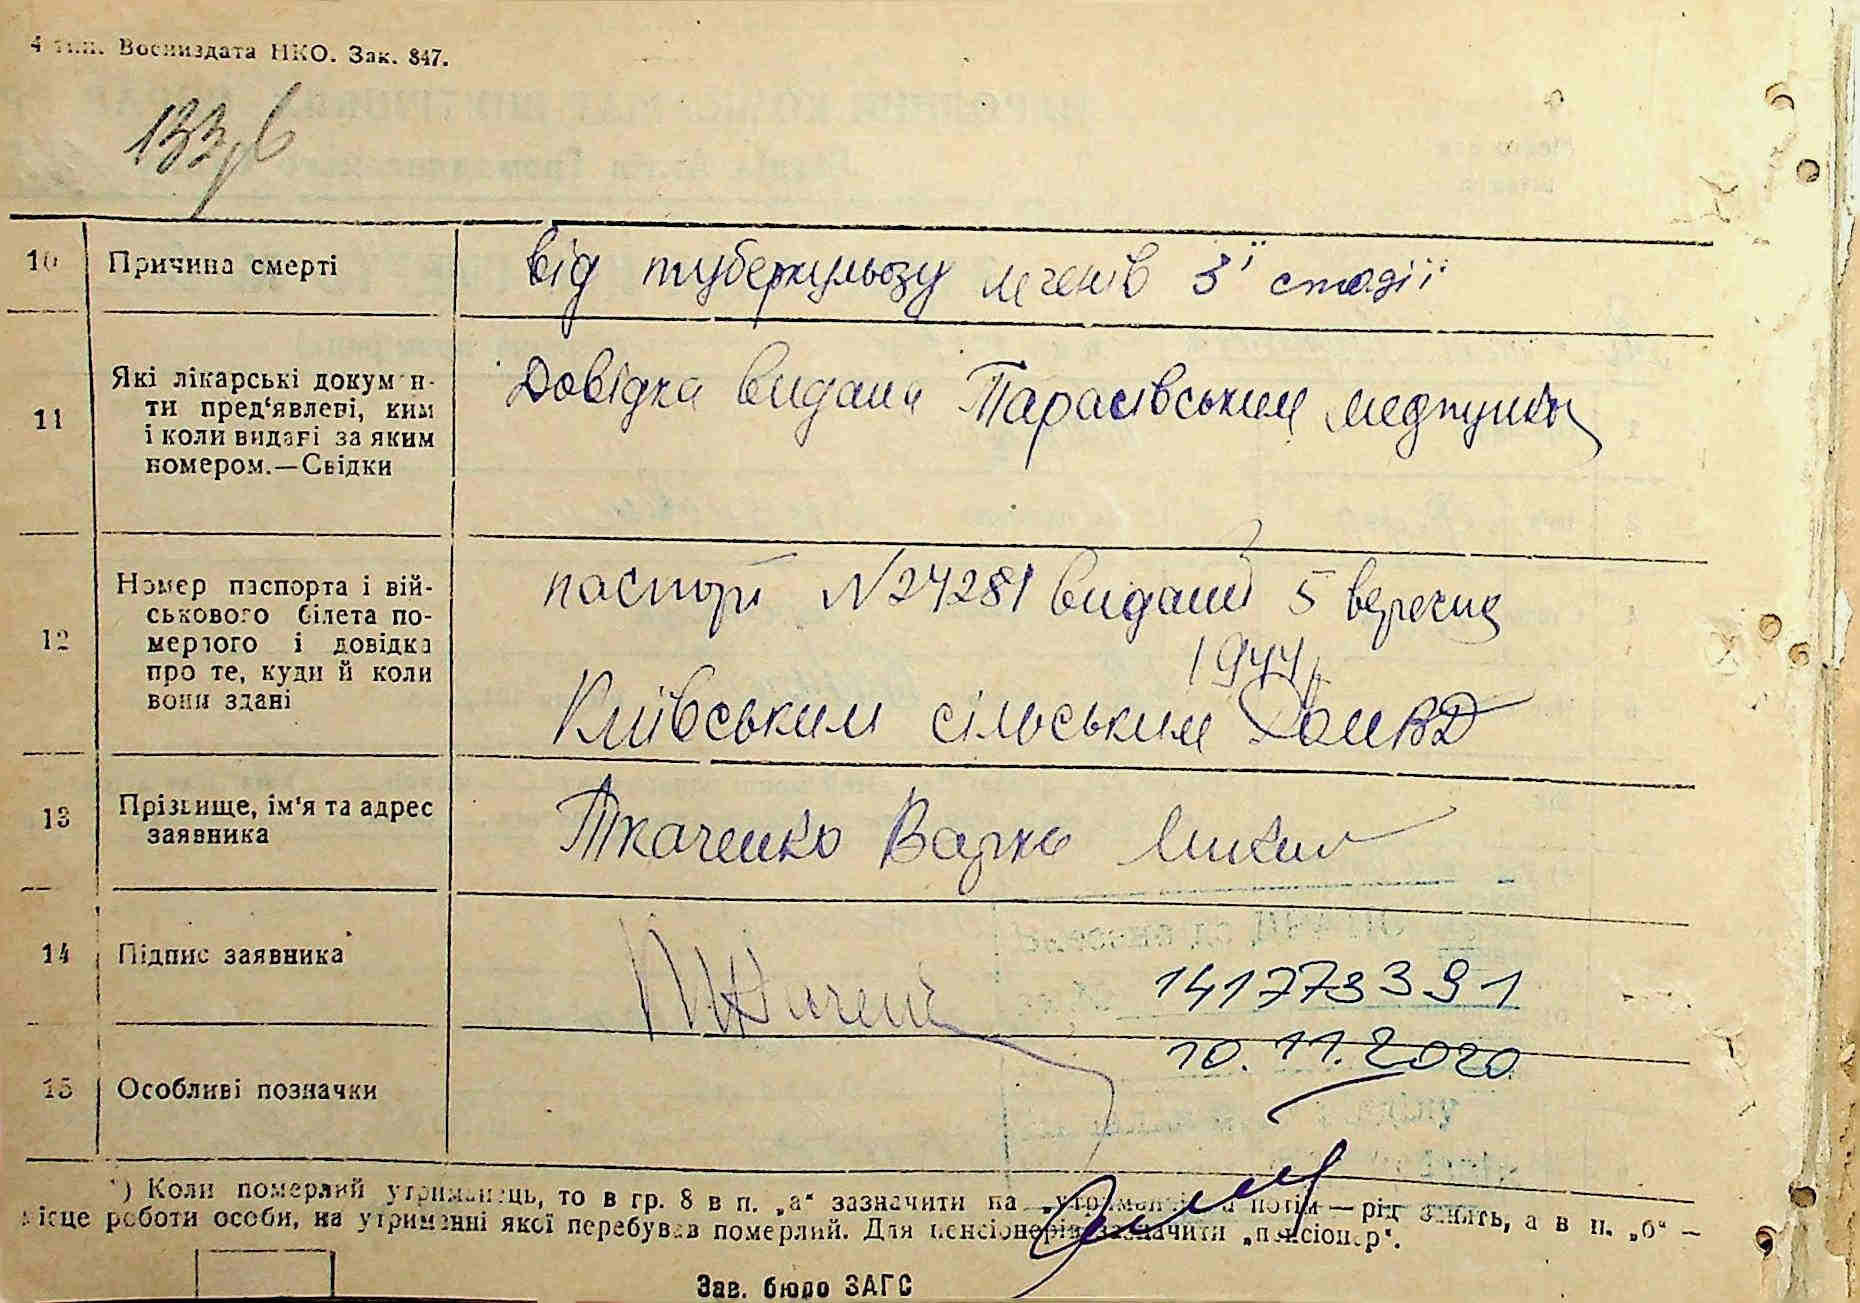 4 тип. Воениздата НКО. Зак. 847.
10 Причина смерті від туберкульозу легенів 3ї стадії
11 Які лікарські докумен-
ти пред'явлені, ким
і коли видані за яким
номером.—Свідки
Довідка видана Тарасівським медпунктом
12 Номер паспорта і вій-
ськового білета по-
мерлого і довідка
про те, куди й коли
вони здані
паспорт N 24281 виданий 5 вересня
1944
Київським сільським
13 Прізвище, ім'я та адрес
заявника
Ткаченко Варка
14 Підпис заявника
141773391
10.11.2020
15 Особливі позначки
*) Коли померлий утриманець, то в гр. 8 в п. „а“ зазначити на „утриманні“, а потім — рід занять, а в п. „б“ —
місце роботи особи, на утриманні якої перебував померлий. Для пенсіонерів зазначити „пенсіонер“.
Зав. бюро ЗАГС